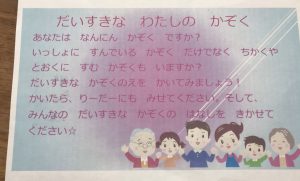 だいすきな わたしの かぞく
あなたは なんにん かぞく ですか？
いっしょに すんでいる かぞく だけでなく ちかくや
とおくに すむ かぞくも いますか？
だいすきな かぞくのえを かいてみましょう！
かいたら、りーだーにも みせてください。そして、
みんなの だいすきな かぞくの はなしを きかせて
ください☆